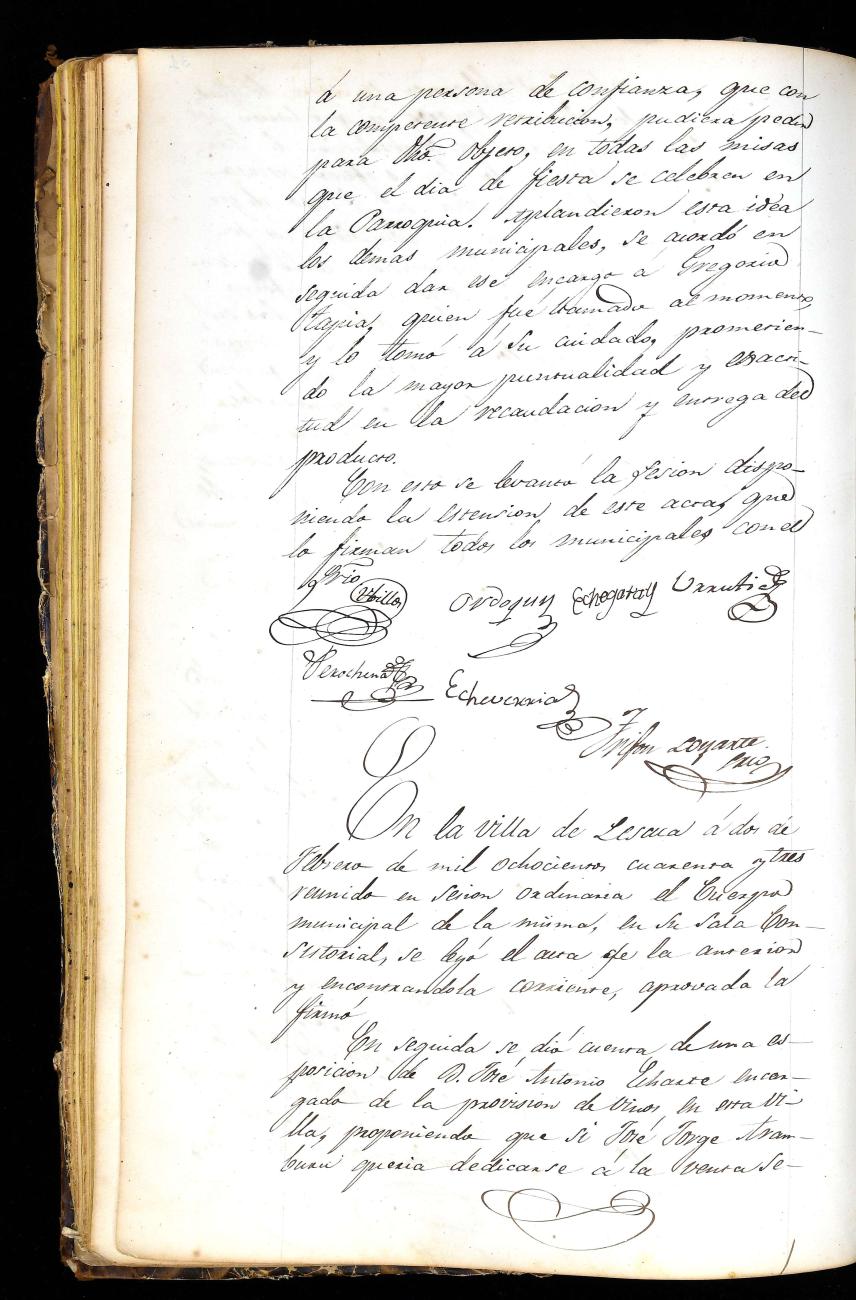 á una persona de confianza, que con
la competente retribucion, pudiera pedir
para dho. objeto, en todas las misas
que el dia de fiesta se celebren en
la Parroquia. Aplaudieron esta idea
los demas municipales, se acordó en
seguida dar ese encargo á Gregorio
Tapia, quien fué llamado al momento,
y lo tomó á su cuidado, prometien-
do la mayor puntualidad y exacti-
tud en la recaudacion y entrega del
producto.
Con esto se levantó la sesion dispo-
niendo la estension de este acta, que
lo firman todos los municipales, con el
Srio.
Ordoquy Echegaray Urrutia
Echeverria
Trifon Loyarte
Srio
En la villa de Lesaca á dos de
Febrero de mil ochocientos cuarenta y tres
reunido en sesion ordinaria el Cuerpo
municipal de la misma, en su sala Con-
sistorial, se leyó el acta de la anterior
y encontrandola corriente, aprovada la
firmó
En seguida se dió cuenta de una es-
posicion de D. José Antonio Echarte encar-
gado de la provision de vinos en esta vi-
lla, proponiendo que si José Jorge Aram-
buru queria dedicarse á la venta se-